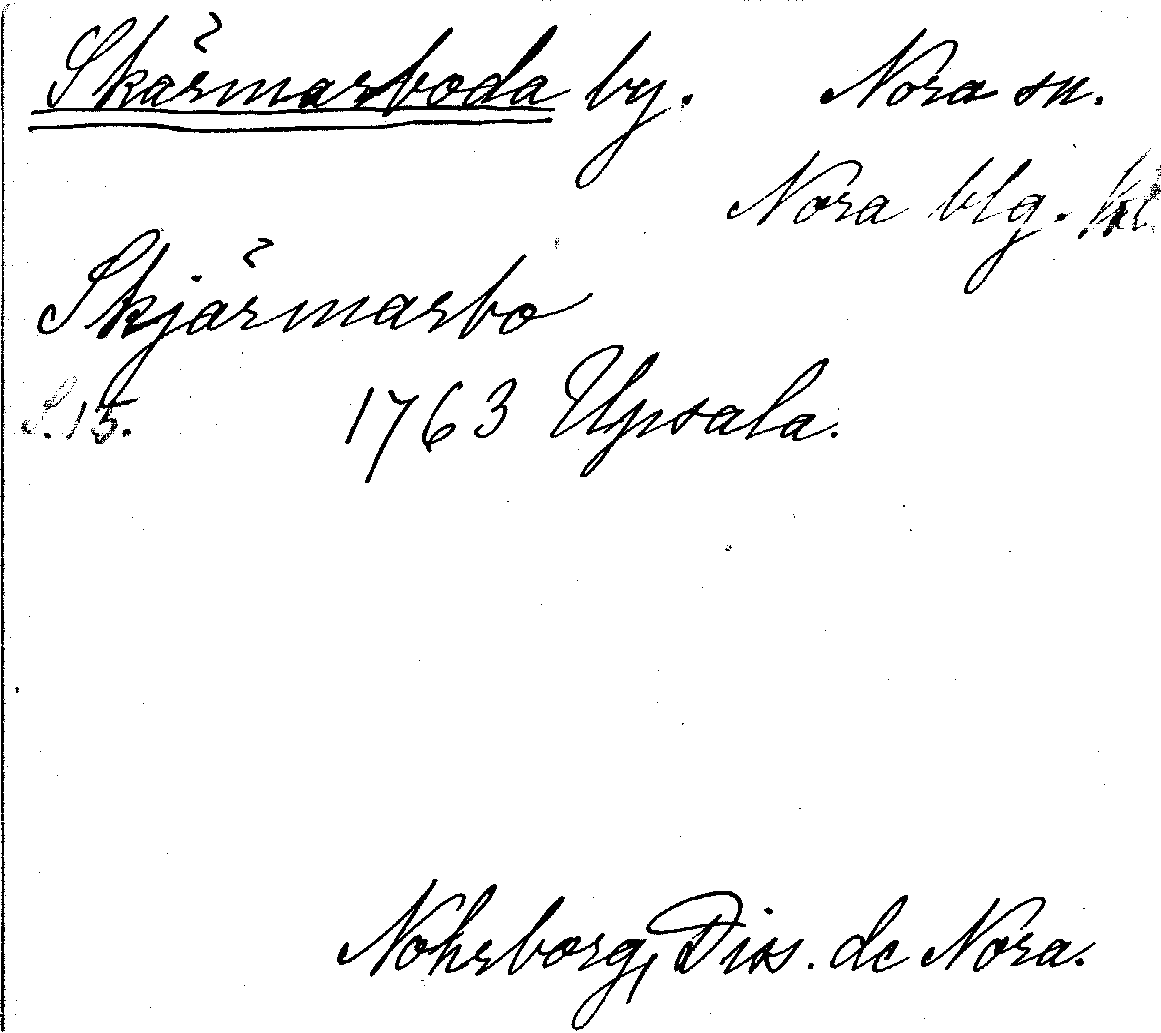 Skärmarboda by. Nora sn.
Nora blg.
Skjärmarbo
S. 15. 1763 Upsala.
Nohrborg, Diss. de Nora.